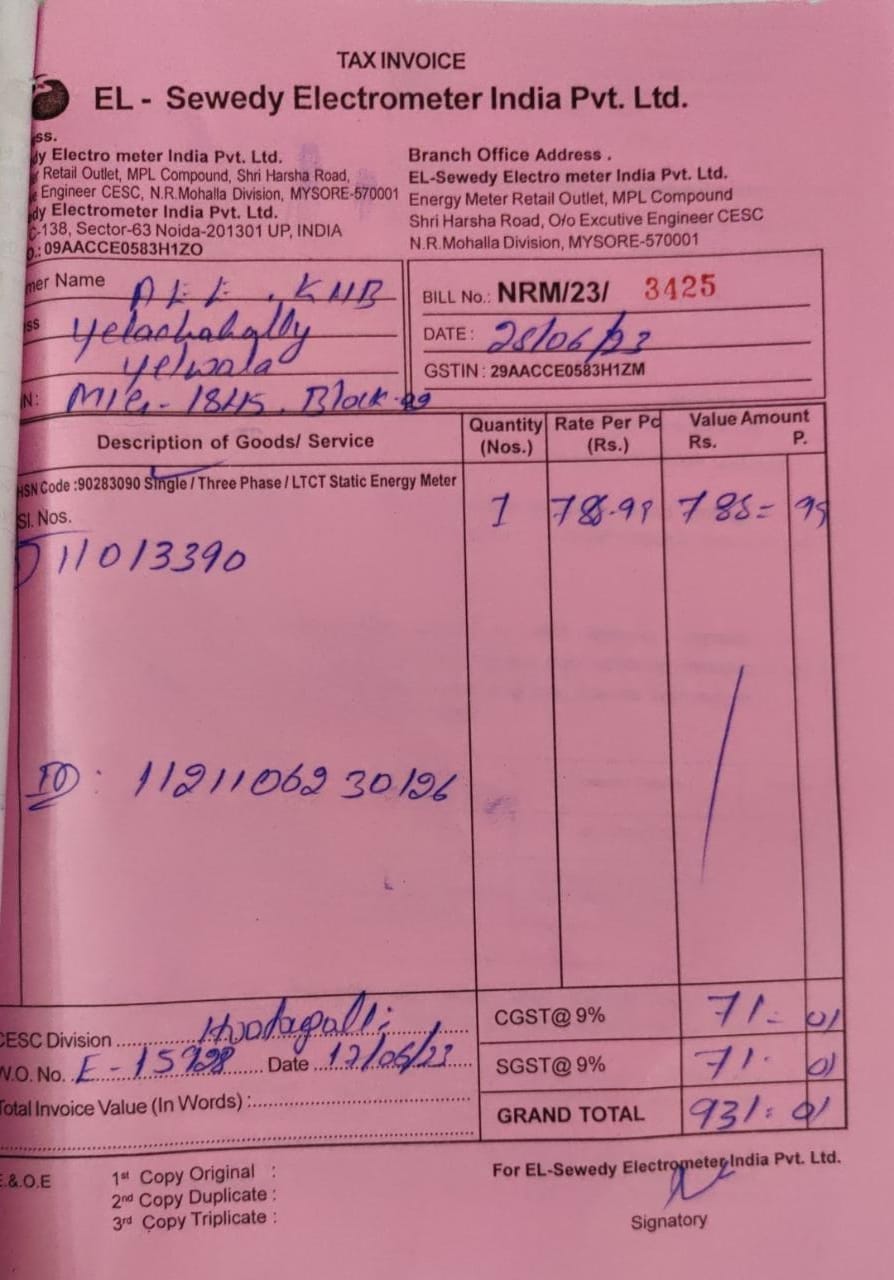 TAX INVOICE
EL - Sewedy Electrometer India Pvt. Ltd.
ss.
dy Electro meter India Pvt. Ltd.
Retail Outlet, MPL Compound, Shri Harsha Road,
Engineer CESC, N.R.Mohalla Division, MYSORE-570001
dy Electrometer India Pvt. Ltd.
C-138, Sector-63 Noida-201301 UP, INDIA
09AACCE0583H1ZO
Branch Office Address .
EL-Sewedy Electro meter India Pvt. Ltd.
Energy Meter Retail Outlet, MPL Compound
Shri Harsha Road, O/o Excutive Engineer CESC
N.R.Mohalla Division, MYSORE-570001
mer Name A E E , KHB
ss Yelachahally
Yelwala
N: MIG - 1845, Block-
BILL No.: NRM/23/ 3425
DATE : 28/06/23
GSTIN : 29AACCE0583H1ZM
Description of Goods/ Service
Quantity (Nos.)
Rate Per Pc (Rs.)
Value Amount
Rs. P.
HSN Code :90283090 Single / Three Phase / LTCT Static Energy Meter
Sl. Nos.
1 785=
11013390
ID : 1121106230126
CESC Division Hootagalli
W.O. No. E - Date 17/06/23
Total Invoice Value (In Words) :
CGST@ 9% 71- 01
SGST@ 9% 71. 01
GRAND TOTAL 931: 01
E.&.O.E
1st Copy Original :
2nd Copy Duplicate :
3rd Copy Triplicate :
For EL-Sewedy Electrometer India Pvt. Ltd.
Signatory